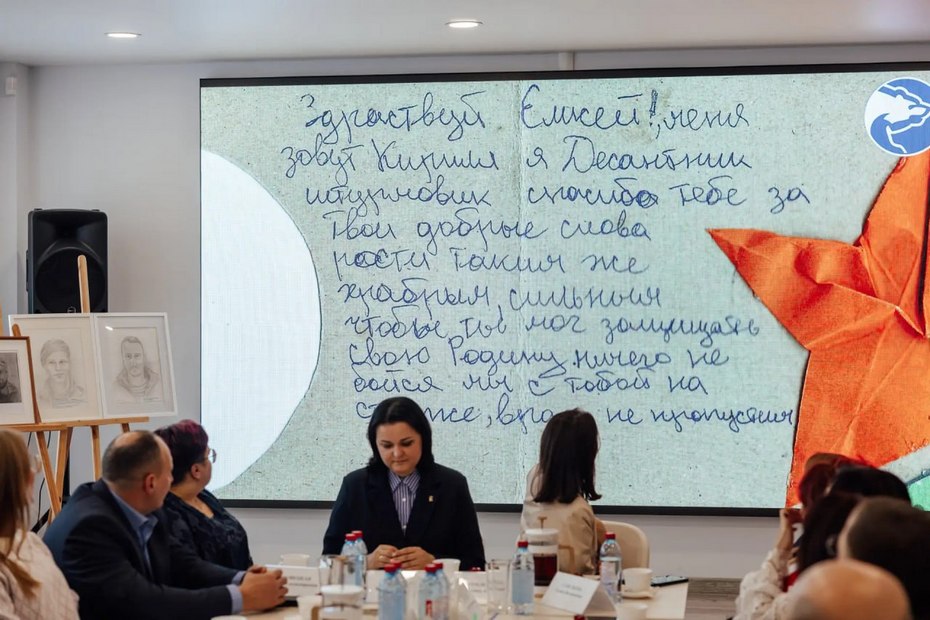 Здраствуй Емкей!, меня
зовут Кирилл я Десантник
штурмовик спасибо тебе за
твои добрые слова
расти таким же
храбрым, сильным
чтобы ты мог защищать
свою Родину, ничего не
бойся мы с тобой на
не пропустим